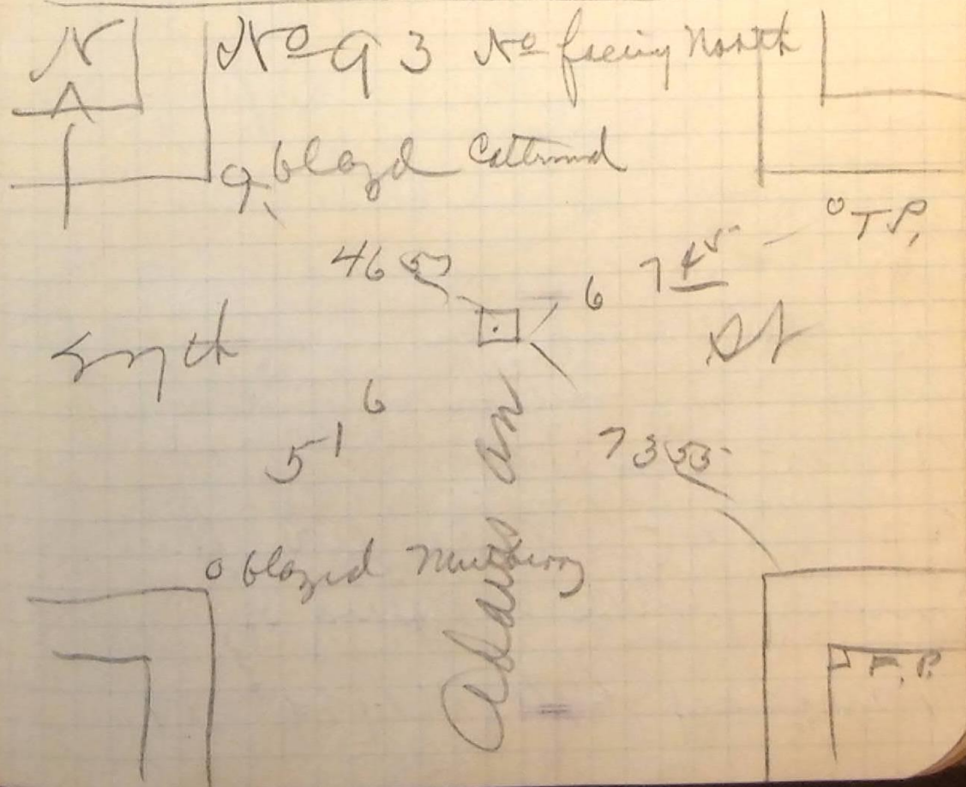 N
No 93 No facing North
blazd Cottnwd
T.P.
46 55
6 7 45
Smyth
St
6
51
73 55
Adams av
blazed Mulberry
F.P.